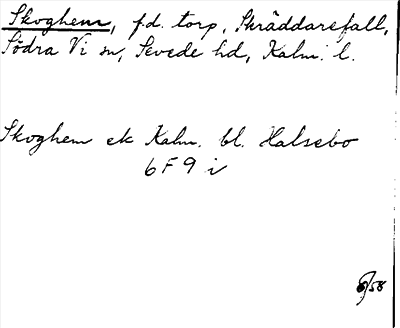 Skoghem, f.d. torp, Skräddarefall,
Södra Vi sn, Sevede hd, Kalm. l.
Skoghem ek Kalm. bl. Halsebo
6 F 9 i